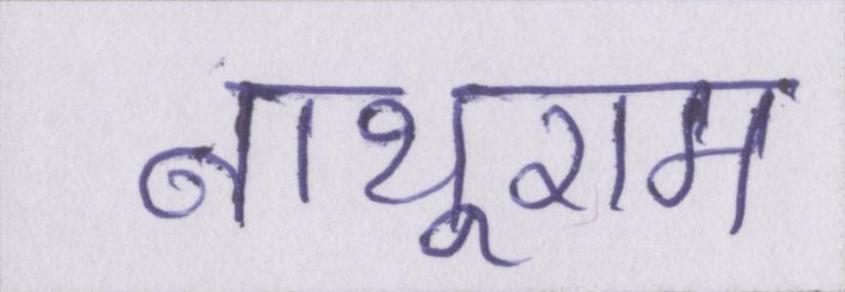 नाथूराम